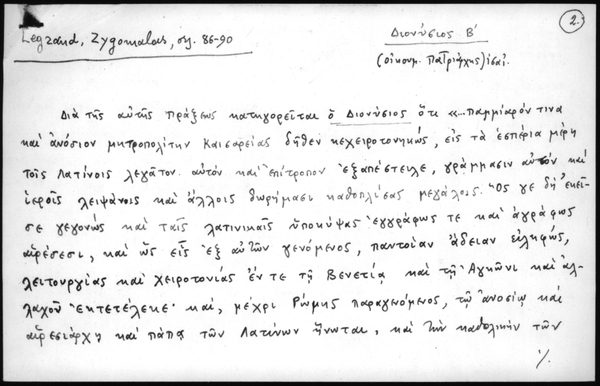 2.
Legrand, Zygomalas, σημ. 86-90
Διονύσιος Β΄
(οἰκουμ. Πατριάρχης)
Διὰ τῆς αὐτῆς Πράξεως κατηγορεῖται ὁ Διονύσιος ὅτι «...παμμίαρόν τινα
καὶ ἀνόσιον μητροπολίτην Καισαρείας δῆθεν κεχειροτονηκώς, εἰς τὰ ἑσπέρια μέρη
τοῖς Λατίνοις λεγᾶτον αὐτὸν καὶ ἐπίτροπον ἐξαπέστειλε, γράμμασιν αὐτὸν καὶ
ἱεροῖς λειψάνοις καὶ ἄλλοις δωρήμασι καθοπλίσας μεγάλοις. Ὅς γε δὴ ἐκεῖ-
σε γεγονὼς καὶ ταῖς λατινικαῖς ὑποκύψας ἐγγράφως τε καὶ ἀγράφως
αἱρέσεσι, καὶ ὡς εἷς ἐξ αὐτῶν γενόμενος, παντοίαν ἄδειαν εἰληφώς,
λειτουργίας καὶ χειροτονίας ἔν τε τῇ Βενετίᾳ καὶ τῇ Ἀγκῶνι καὶ ἀλ-
λαχοῦ ἐκτετέλεκε· καί, μέχρι Ρώμης παραγενόμενος, τῷ ἀνοσίῳ καὶ
αἱρεσιάρχῃ καὶ πάπᾳ τῶν Λατίνων ἥνωται, καὶ τὴν καθολικὴν τῶν
./.